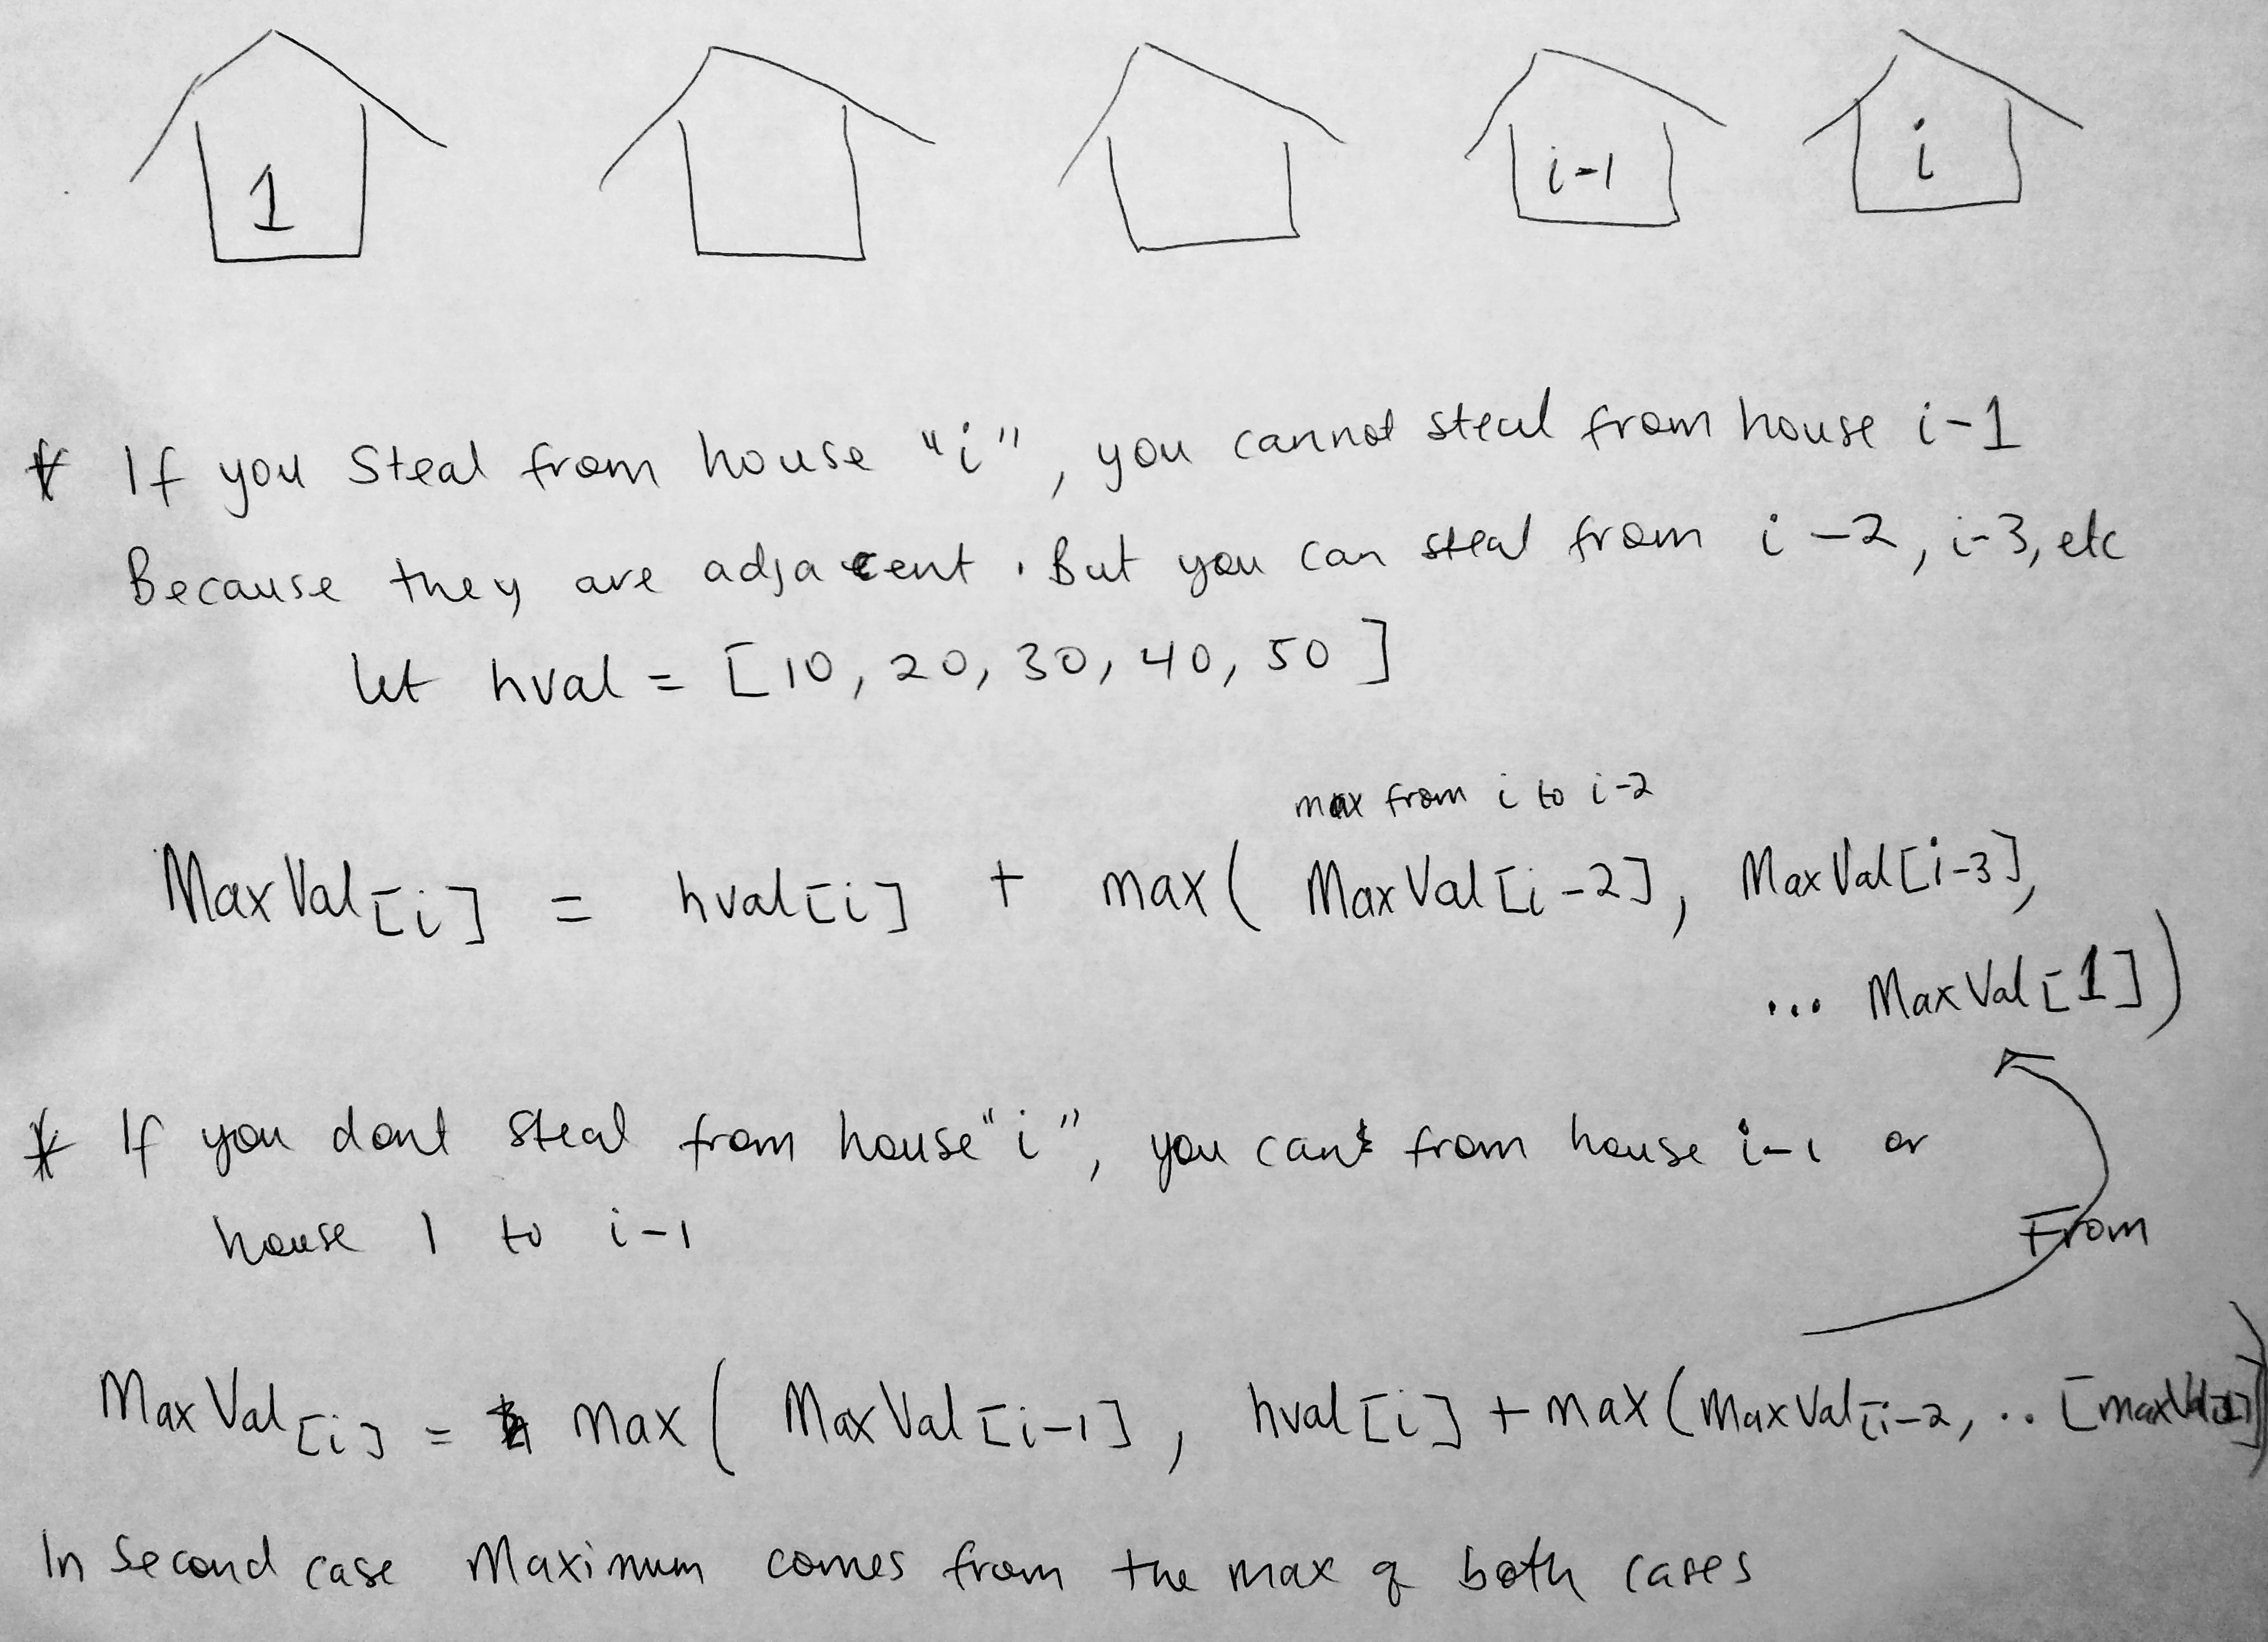 1 i-1 i
* If you Steal from house "i", you cannot steal from house i-1
Because they are adjacent. But you can steal from i-2, i-3, etc
let hval = [10, 20, 30, 40, 50]
max from i to i-2
MaxVal[i] = hval[i] + max( MaxVal[i-2], MaxVal[i-3],
... MaxVal[1])
* If you dont steal from house "i", you can from house i-1 or
house 1 to i-1
From
MaxVal[i] = max( MaxVal[i-1], hval[i] + max(MaxVal[i-2, .. [maxVal
In Second case Maximum comes from the max of both cases